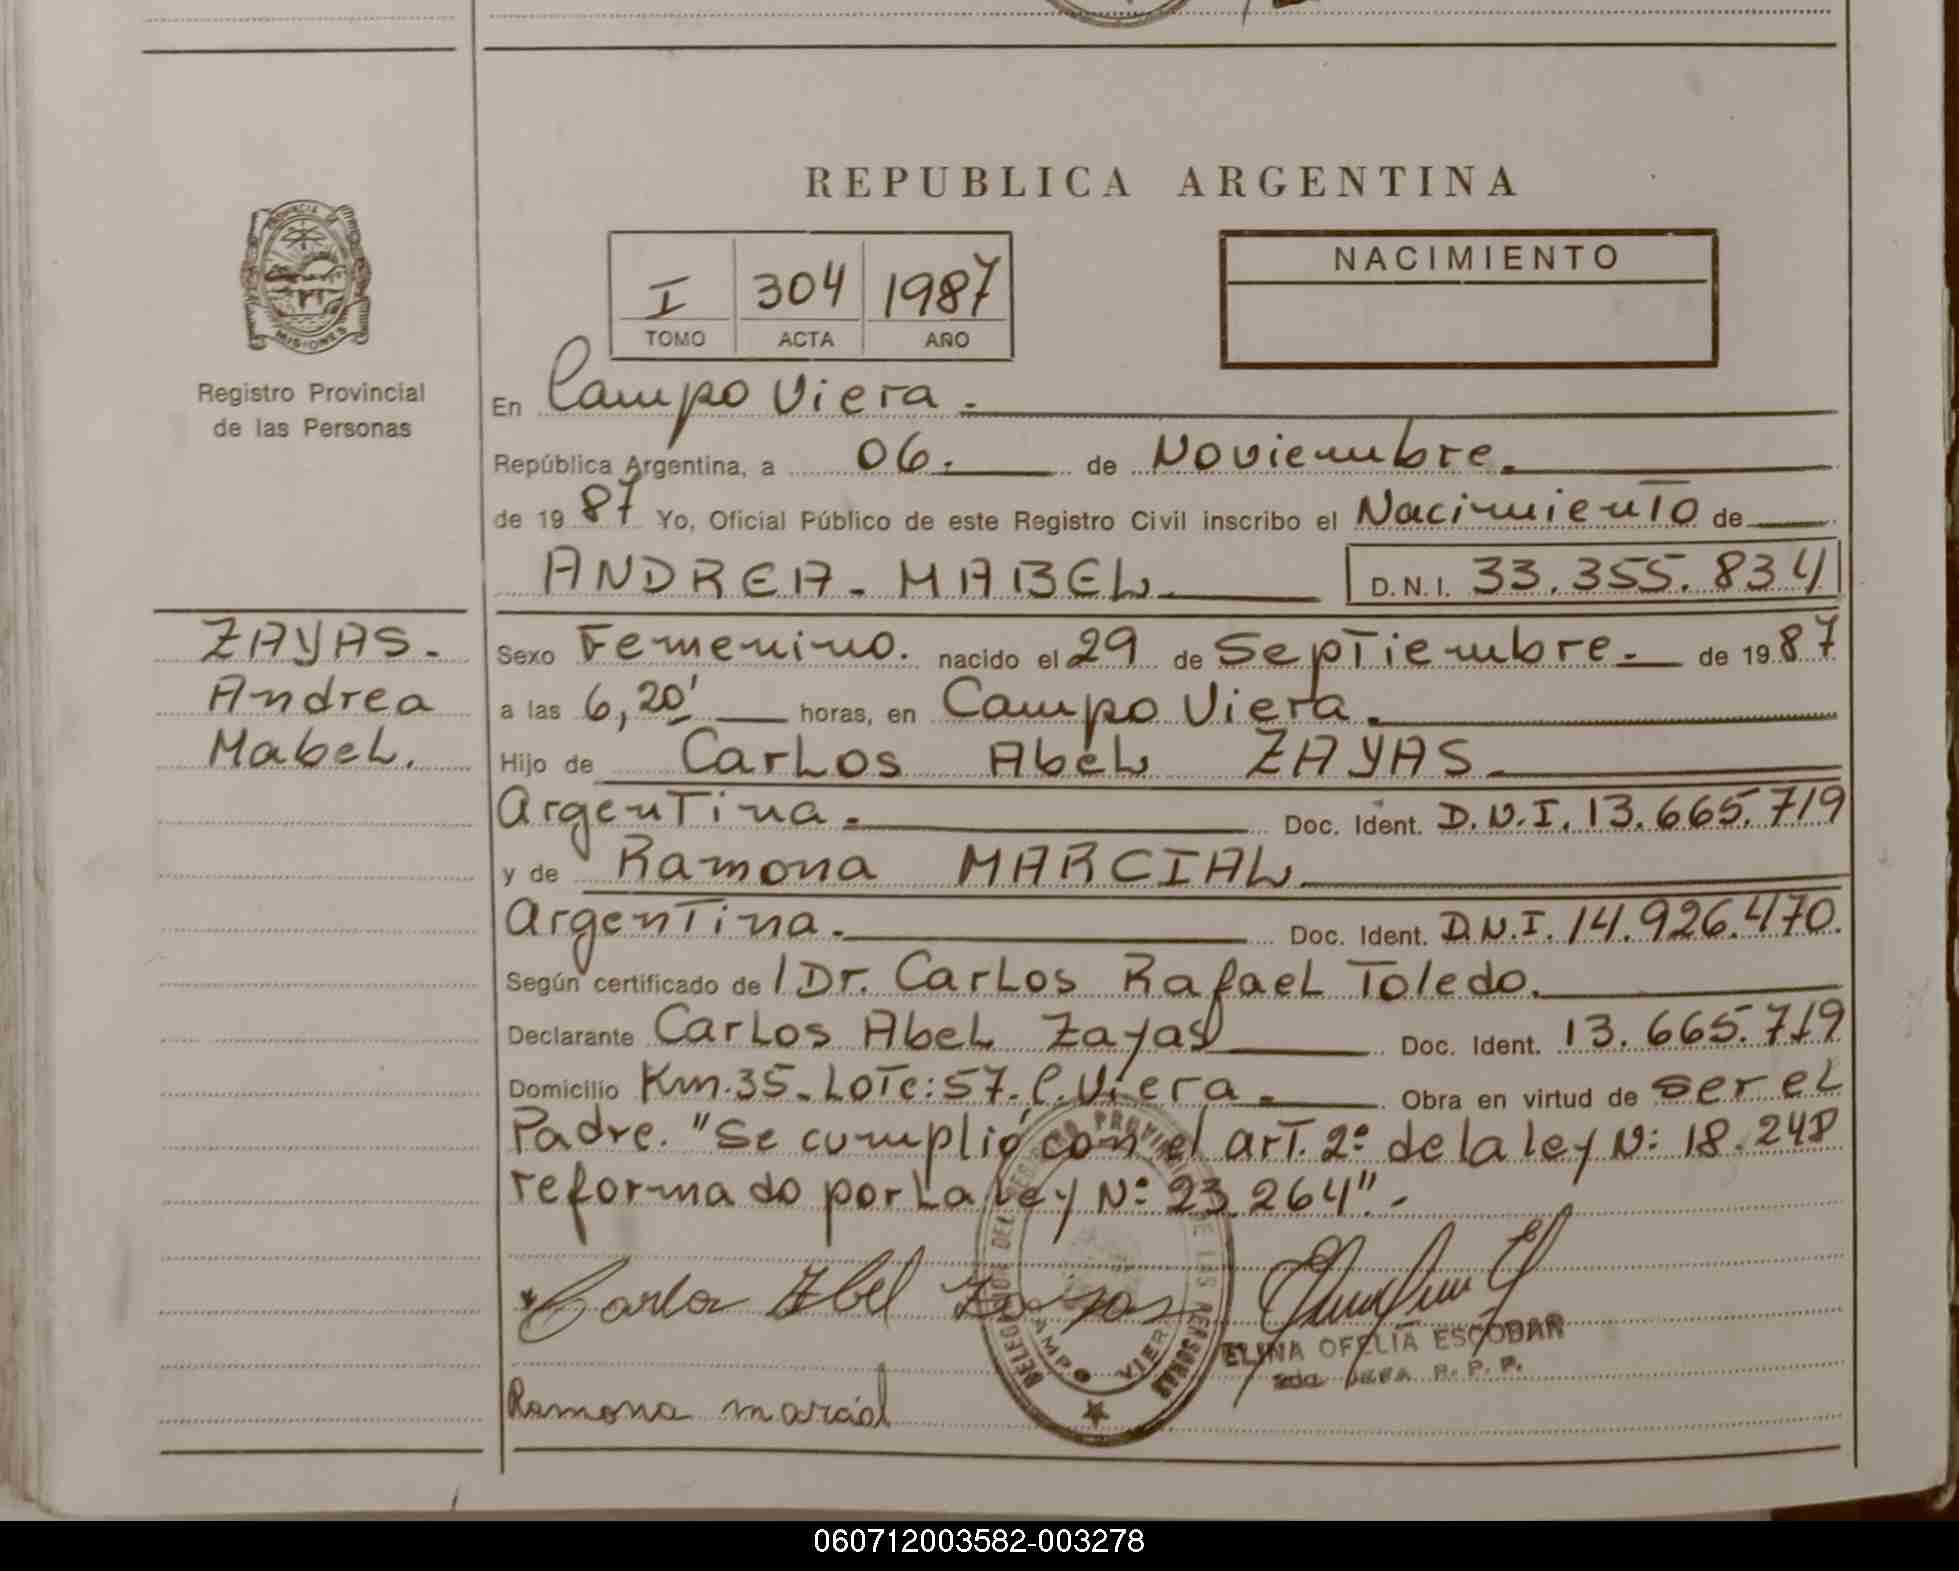 REPUBLICA ARGENTINA
PROVINCIA DE
MISIONES
Registro Provincial
de las Personas
I 304 1987
TOMO ACTA AÑO
NACIMIENTO
En Campo Viera.
República Argentina, a 06. de Noviembre.
de 19 87 Yo, Oficial Público de este Registro Civil inscribo el Nacimiento de
ANDREA - MABEL. D.N.I. 33.355.834
ZAYAS.
Andrea
Mabel.
Sexo Femenino. nacido el 29 de Septiembre. de 19 87
a las 6,20' horas, en Campo Viera.
Hijo de Carlos Abel ZAYAS.
Argentina. Doc. Ident. D.N.I. 13.665.719
y de Ramona MARCIAL
Argentina. Doc. Ident. D.N.I. 14.926.470.
Según certificado de / Dr. Carlos Rafael Toledo.
Declarante Carlos Abel Zayas Doc. Ident. 13.665.719
Domicilio Km.35. Lote:57. C. Viera. Obra en virtud de ser el
Padre. "Se cumplió con el art. 2º de la ley Nº 18.248
reformado por la Ley Nº 23.264".
Carlos Abel Zayas
ELINA OFELIA ESCOBAR
R. P. P.
Ramona Marcial
DEL REGISTRO PROVINCIAL DE LAS PERSONAS
CAMPO VIERA
060712003582-003278